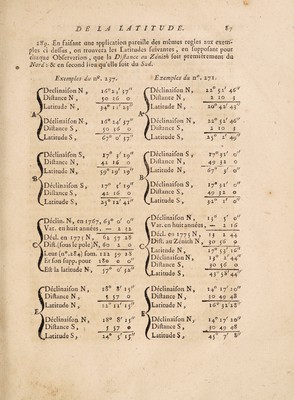 DE LA LATITUDE. 87
289. En faisant une application pareille des mêmes regles aux exem-
ples ci dessus, on trouvera les Latitudes suivantes, en supposant pour
chaque Observation, que la Distance au Zénith soit premièrement du
Nord: & en second lieu qu'elle soit du Sud.
Exemples du nº. 257.
A
Déclinaison N, 16° 24' 37"
Distance N, 50 36 0
Latitude N, 34° 11' 23"
Déclinaison N, 16° 24' 37"
Distance S, 50 36 0
Latitude N, 67° 0' 37"
B
Déclinaison S, 17° 3' 19"
Distance N, 42 16 0
Latitude N, 59° 19' 19"
Déclinaison S, 17° 3' 19"
Distance S, 42 16 0
Latitude S, 25° 12' 41"
C
Déclin. N, en 1767, 63° 0' 0"
Var. en huit années, — 2 12
Décl. en 1775 N, 62 57 28
Dist. (sous le pole) N, 60 2 0
Leur (nº. 284) som. 122 59 28
Et son supp. pour 180 0 0
Est la latitude N, 57° 0' 32"
E
Déclinaison N, 18° 8' 15"
Distance N, 5 57 0
Latitude N, 12° 11' 15"
Déclinaison N, 18° 8' 15"
Distance S, 5 57 0
Latitude S, 24° 5' 15"
Exemples du nº. 272.
A
Déclinaison N, 22° 52' 46"
Distance N, 2 10 3
Latitude N, 20° 42' 43"
Déclinaison N, 22° 52' 46"
Distance S, 2 10 3
Latitude S, 25° 2' 49"
B
Déclinaison S, 17° 31' 0"
Distance N, 49 32 0
Latitude N, 67° 3' 0"
Déclinaison S, 17° 31' 0"
Distance S, 49 32 0
Latitude S, 32° 1' 0"
C
Déclinaison N, 13° 5' 0"
Var. en huit années, — 2 16
Décl. en 1775 N, 13 2 44
Dist. au Zénith N, 30 56 0
Latitude N, 17° 53' 16"
Déclinaison N, 13° 2' 44"
Distance S, 30 56 0
Latitude S, 43° 58' 44"
E
Déclinaison N, 14° 17' 20"
Distance N, 30 49 48
Latitude N, 16° 32' 28"
Déclinaison N, 14° 17' 20"
Distance S, 30 49 48
Latitude S, 45° 7' 8"